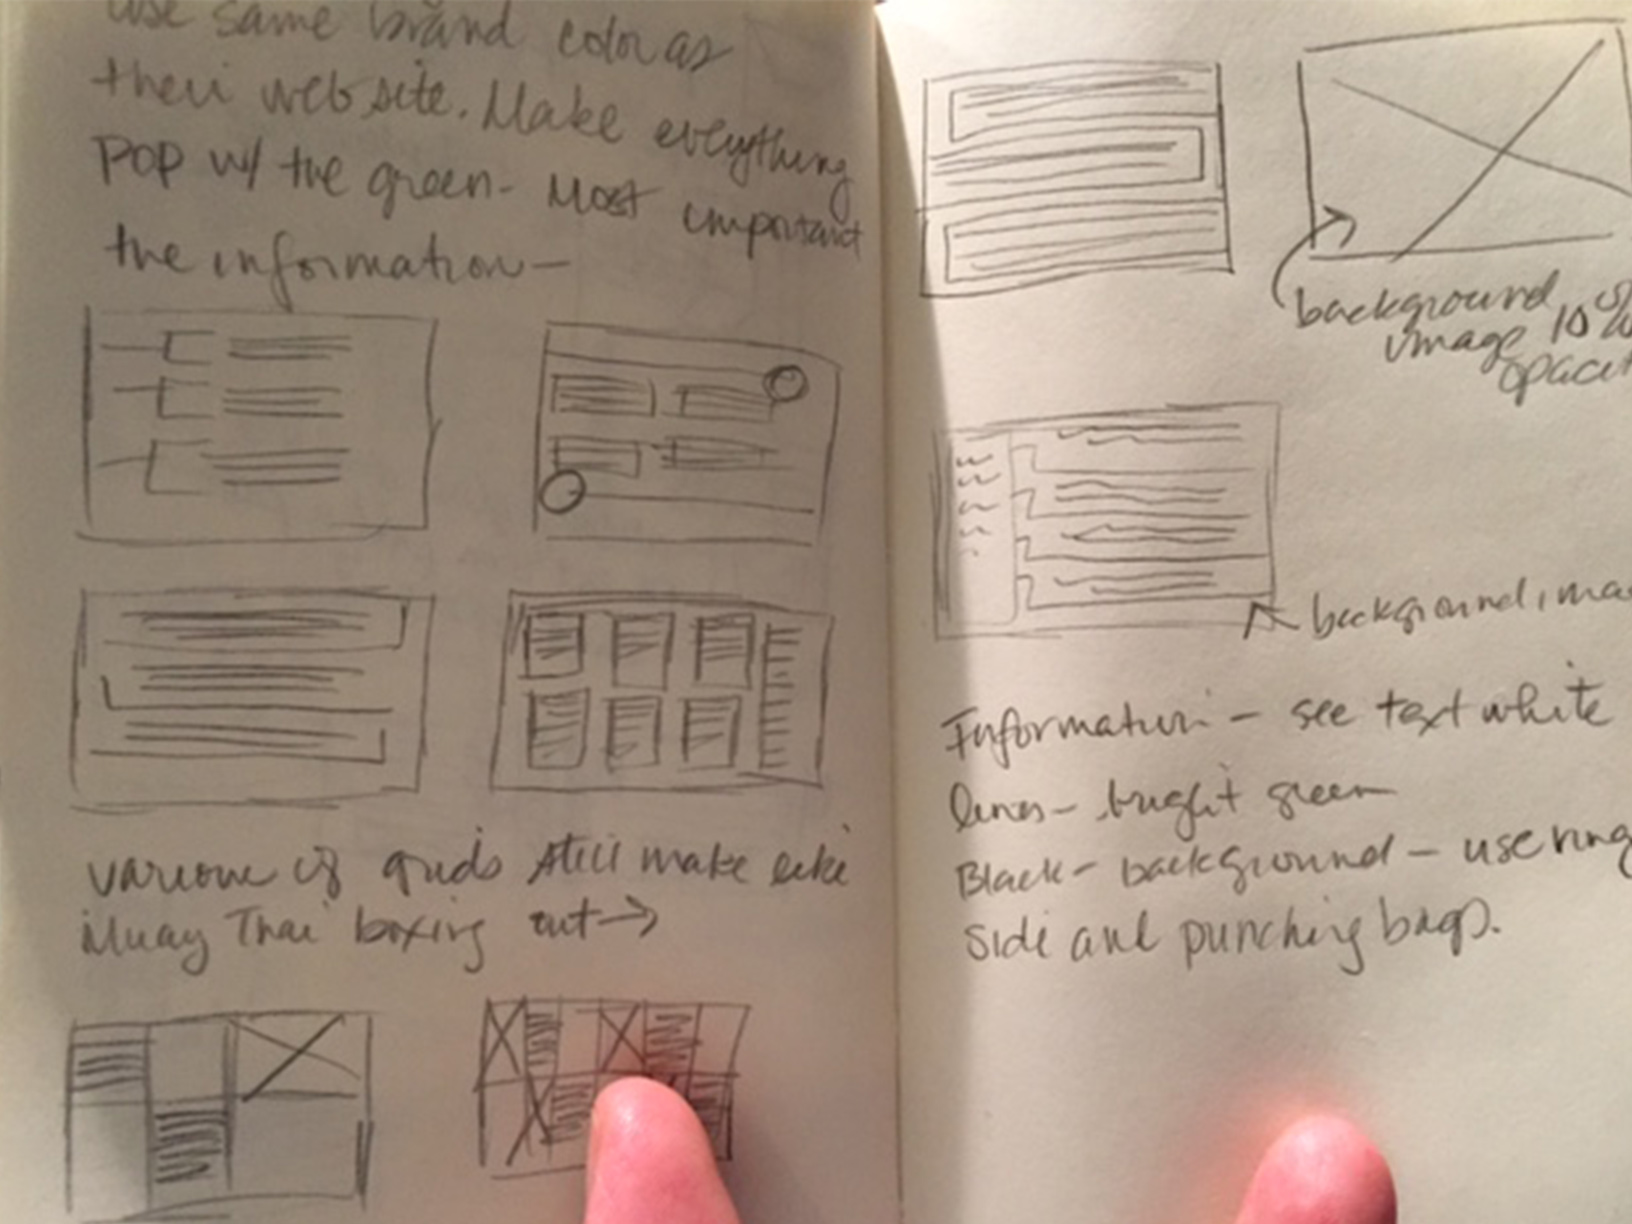 use same brand color as
their website. Make everything
POP w/ the green - Most important
the information -
various of grids still make like
Muay Thai boxing out →
background
image 10%
opacit
background ima
Information - see text white
lines - bright green
Black - background - use ring
side and punching bags.